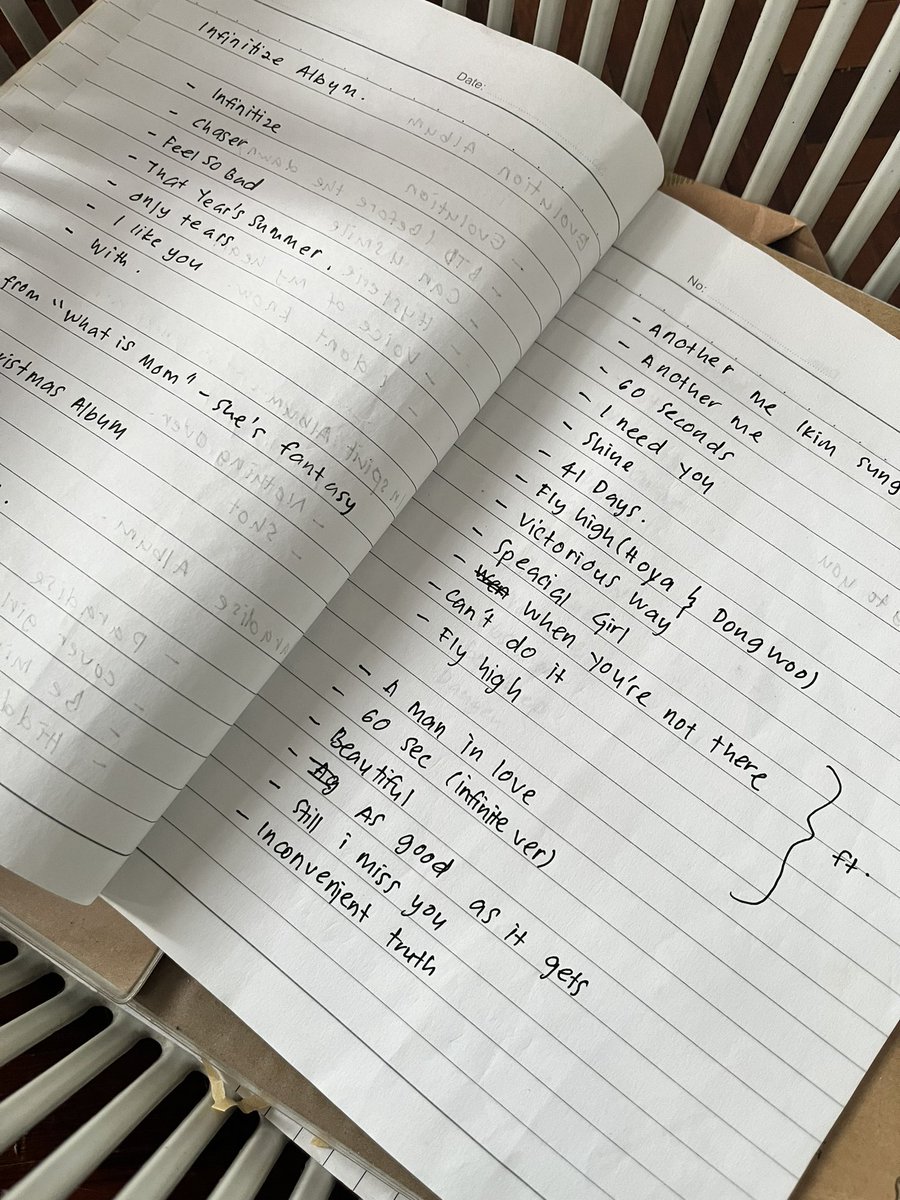 Date:
Infinitize Album.
- Infinitize
- Chaser
- Feel So Bad
- That Year's Summer.
- only tears
- I like you
- With.
from "What is Mom" - She's fantasy
istmas Album
No:
- Another me (Kim Sung
- Another me
- 60 seconds
- I need you
- Shine
- 41 Days.
- Fly high (Hoya & Dongwoo)
- Victorious Way
- Speacial Girl
- When you're not there
- Can't do it
- Fly high
- A man in love
- 60 sec (infinite ver)
- Beautiful
- As good as it gets
- Still i miss you
- Inconvenient truth
ft.